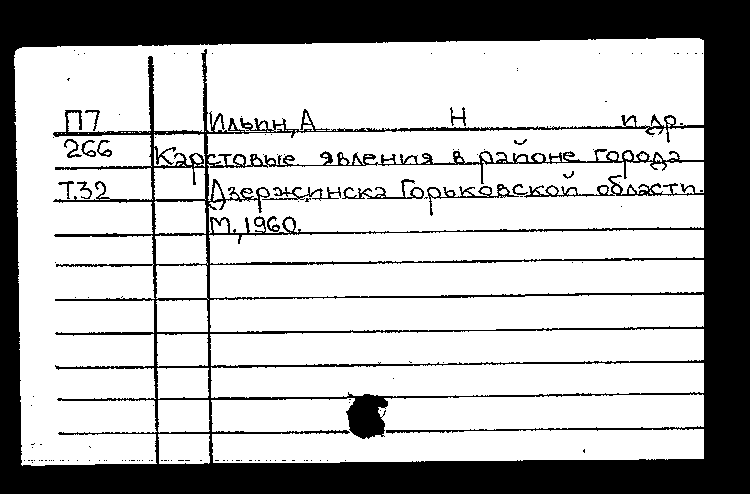 П7 Ильин, А Н и др.
266 Карстовые явления в районе города
Т.32 Дзержинска Горьковской области.
М., 1960.